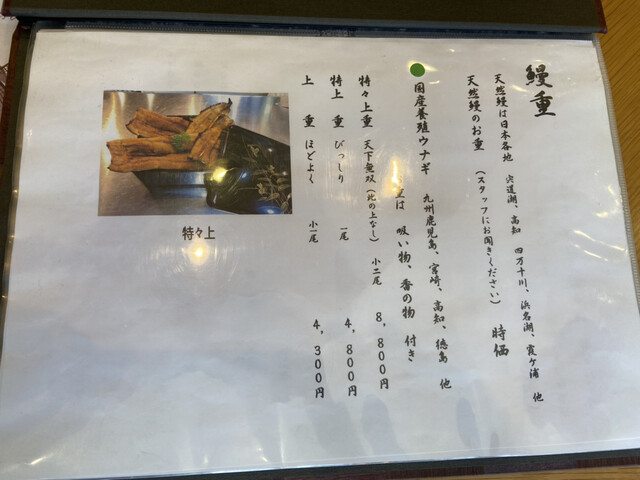 鰻重
天然鰻は日本各地 宍道湖、高知 四万十川、浜名湖、霞ケ浦 他
天然鰻のお重 (スタッフにお聞きください) 時価
国産養殖ウナギ 九州鹿児島、宮崎、高知、徳島 他
重は 吸い物、香の物 付き
特々上重 天下無双(此の上なし) 小二尾 8,800円
特上重 びっしり 一尾 4,800円
上重 ほどよく 小一尾 4,300円
特々上